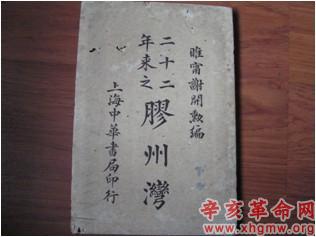 睢甯謝開勳編
二十二年來之
膠州灣
上海中華書局印行
辛亥革命网
www.xhgmw.org